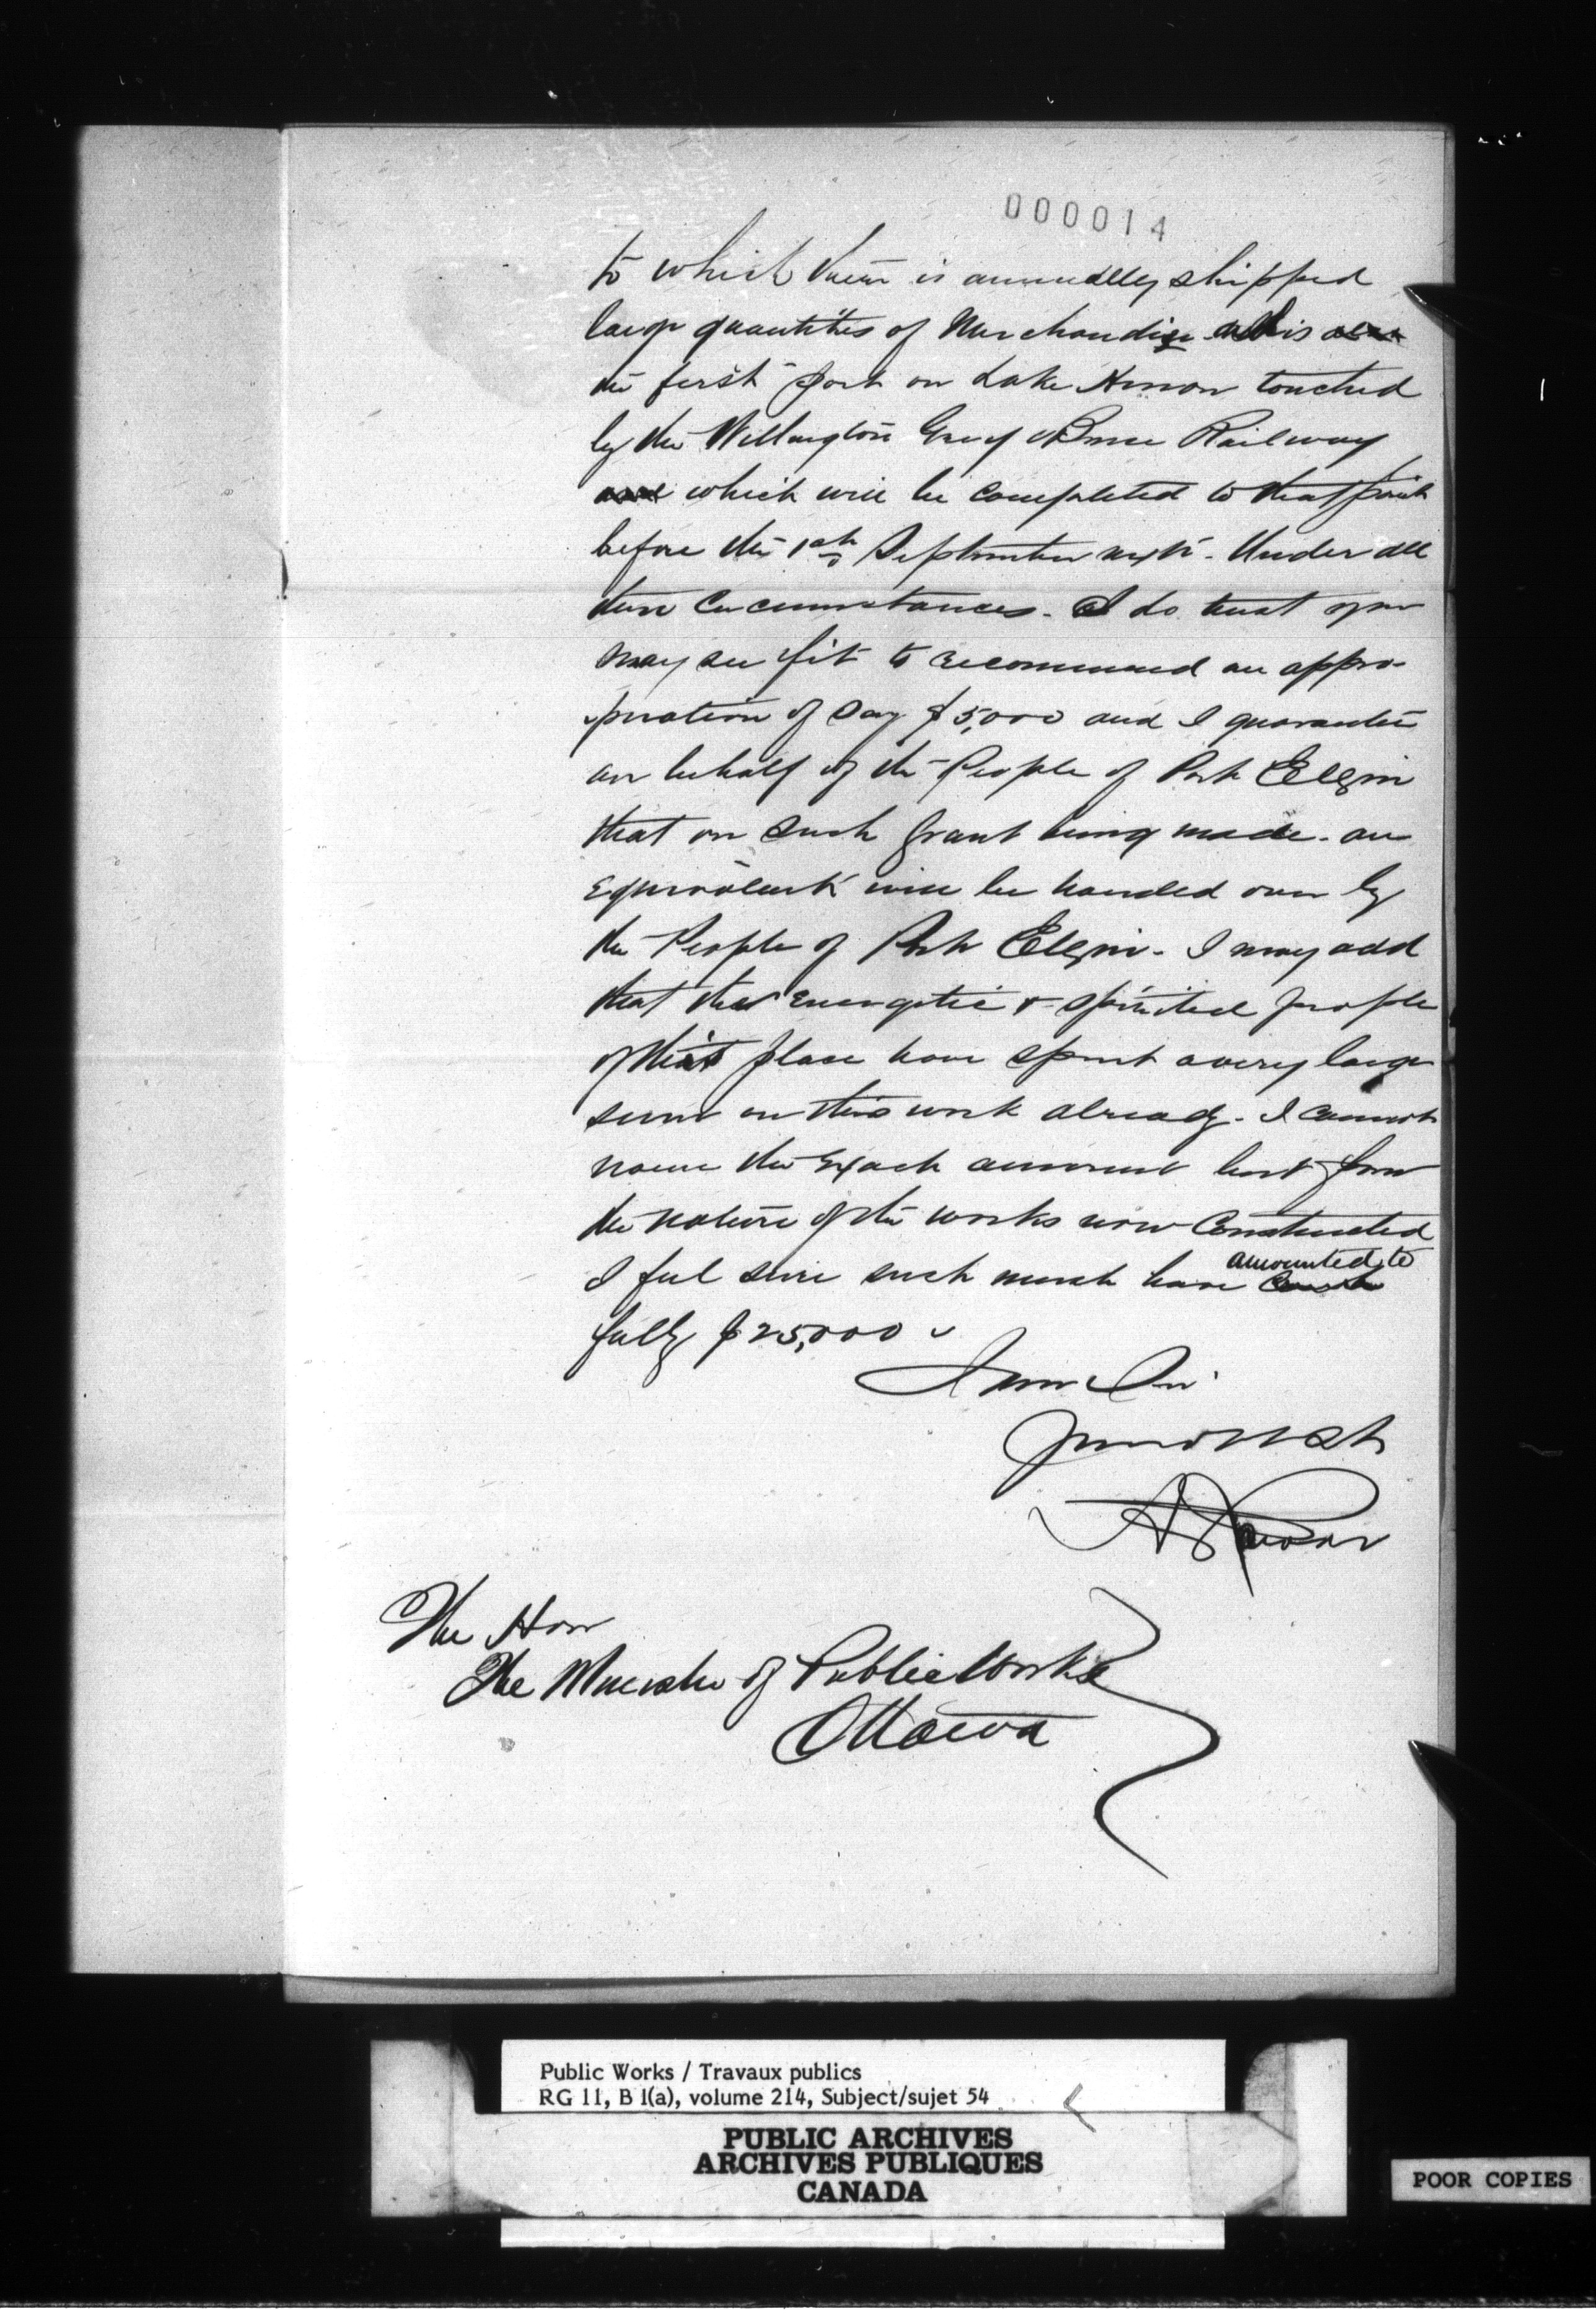 000014
to which there is annually shipped
large quantities of Merchandise & is
the first Port on Lake Huron touched
by the Wellington Grey & Bruce Railway
which will be completed to that point
before the 1st September next. Under all
these Circumstances. I do trust you
may see fit to recommend an appro-
priation of Say $5,000 and I guarantee
on behalf of the People of Port Elgin
that on Such Grant being made. an
Equivalent will be handed over by
the People of Port Elgin. I may add
that the Energetic & spirited people
of this place have spent a very large
sum on this work already. I cannot
name the Exact amount but from
the nature of the works now Constructed
I feel sure such must have amounted to
fully $25,000
I am Sir
The Hon
The Minister of Public Works
Ottawa
Public Works / Travaux publics
RG 11, B 1(a), volume 214, Subject/sujet 54
PUBLIC ARCHIVES
ARCHIVES PUBLIQUES
CANADA
POOR COPIES